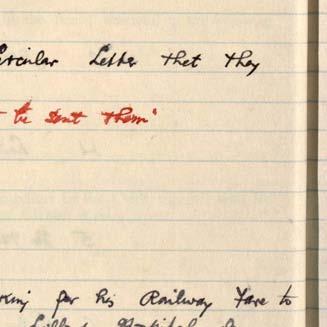 Circular Letter that they
be sent them"
for his Railway Fare to
Hospital